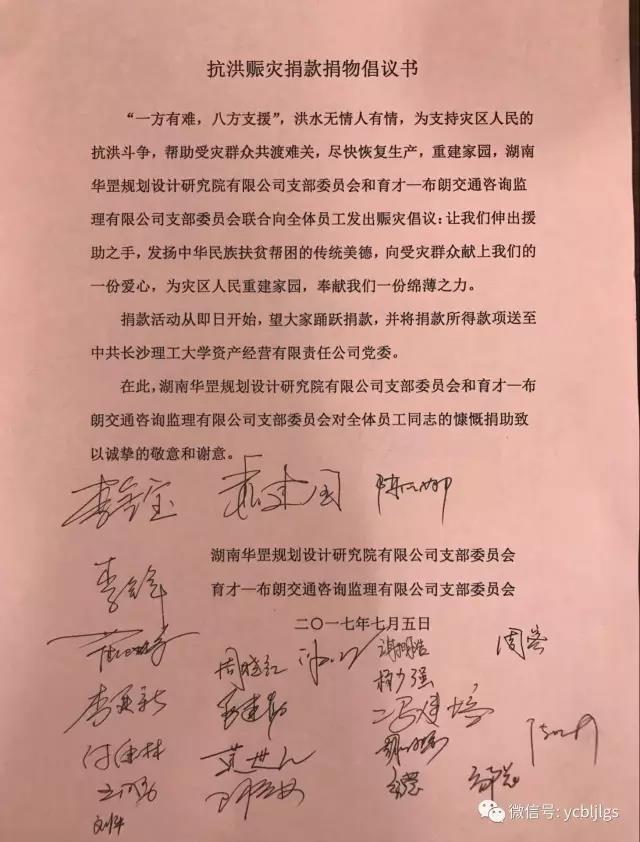 抗洪赈灾捐款捐物倡议书
“一方有难，八方支援”，洪水无情人有情，为支持灾区人民的
抗洪斗争，帮助受灾群众共渡难关，尽快恢复生产，重建家园，湖南
华罡规划设计研究院有限公司支部委员会和育才—布朗交通咨询监
理有限公司支部委员会联合向全体员工发出赈灾倡议：让我们伸出援
助之手，发扬中华民族扶贫帮困的传统美德，向受灾群众献上我们的
一份爱心，为灾区人民重建家园，奉献我们一份绵薄之力。
捐款活动从即日开始，望大家踊跃捐款，并将捐款所得款项送至
中共长沙理工大学资产经营有限责任公司党委。
在此，湖南华罡规划设计研究院有限公司支部委员会和育才—布
朗交通咨询监理有限公司支部委员会对全体员工同志的慷慨捐助致
以诚挚的敬意和谢意。
湖南华罡规划设计研究院有限公司支部委员会
育才—布朗交通咨询监理有限公司支部委员会
二〇一七年七月五日
周晓红
杨力强
范世人
微信号: ycbljlgs